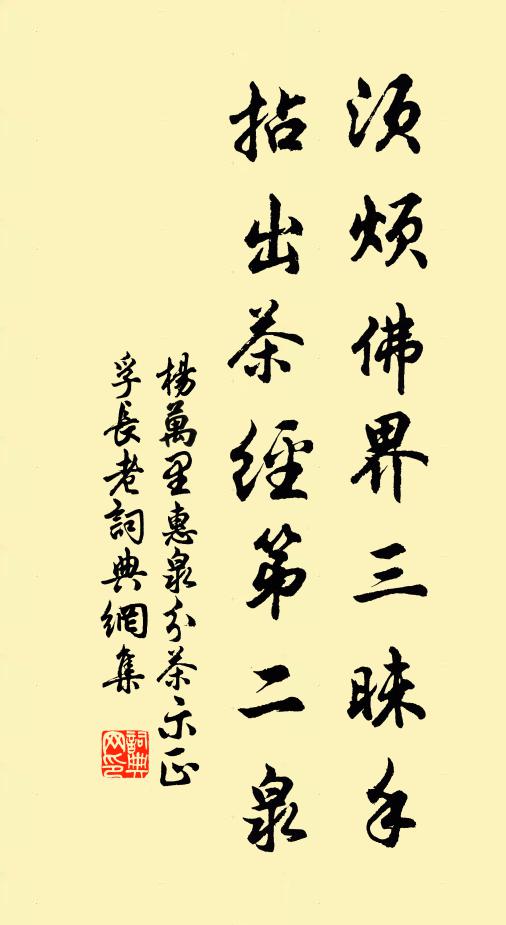 須煩佛界三昧手
拈出茶經第二泉
楊萬里惠泉分茶示正
孚長老詞典網集
詞典網印